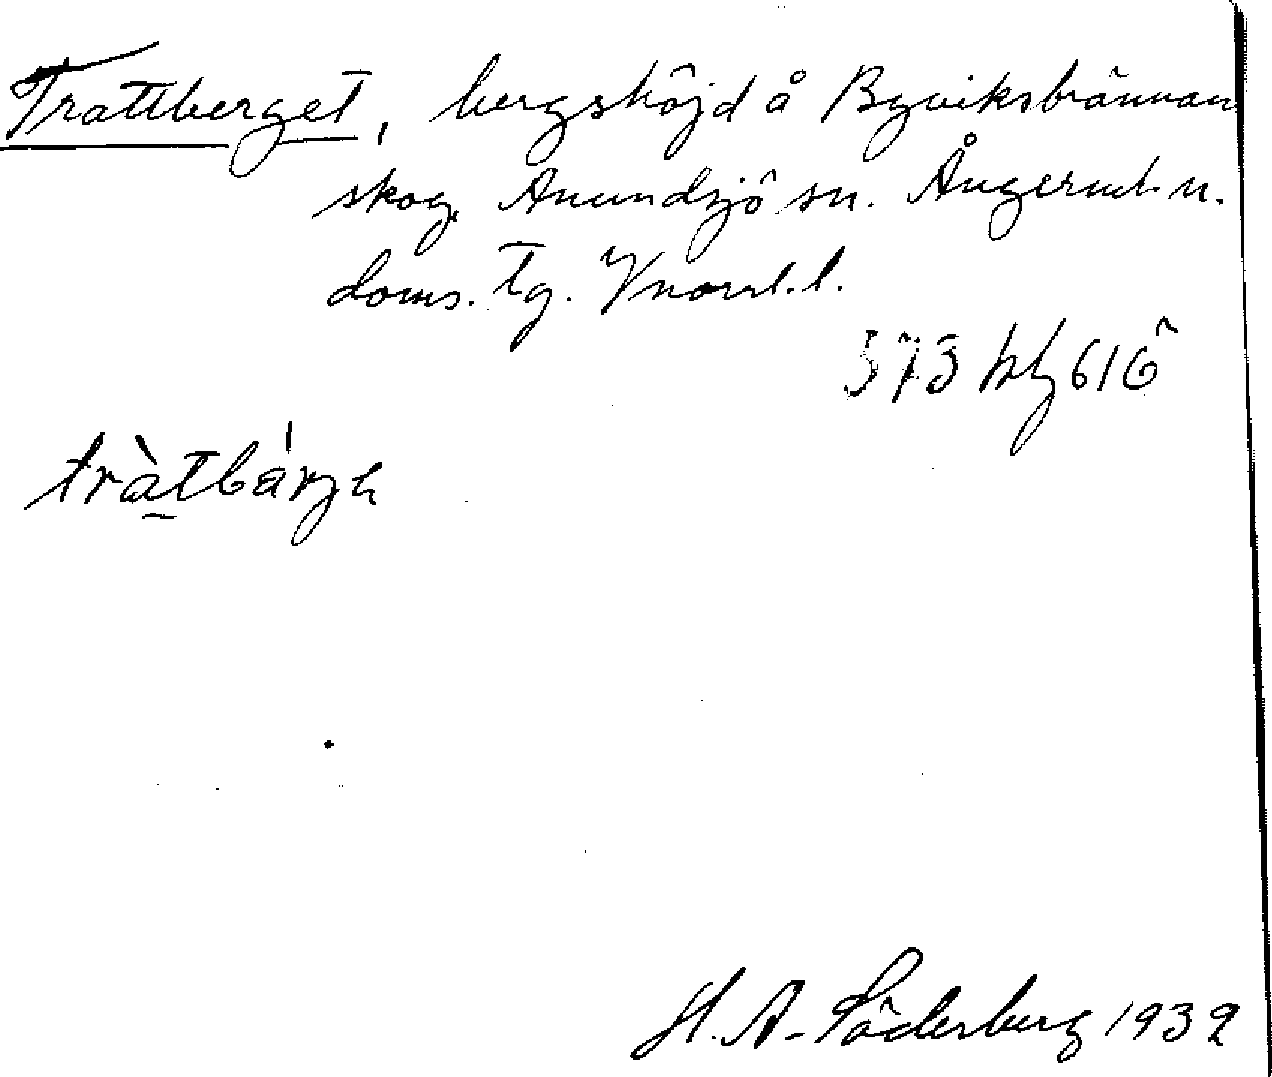 Trattberget, bergshöjd å Bysviksbrännan
skog, Anundsjö sn. Ångerml. n.
doms. tg. Vnorrl. l.
573 hz 616
tràtbárja
H. A. Söderberg 1932